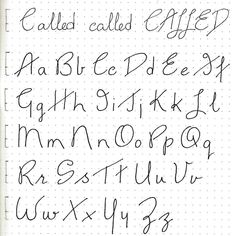 Called called CALLED
Aa Bb Cc Dd Ee Ff
Gg Hh Ii Jj Kk Ll
Mm Nn Oo Pp Qq
Rr Ss Tt Uu Vv
Ww Xx Yy Zz